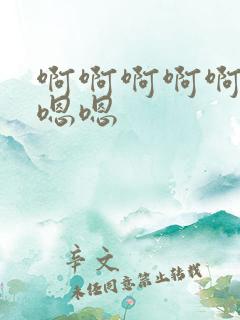 啊啊啊啊啊
嗯嗯
辛文
未经同意禁止转载